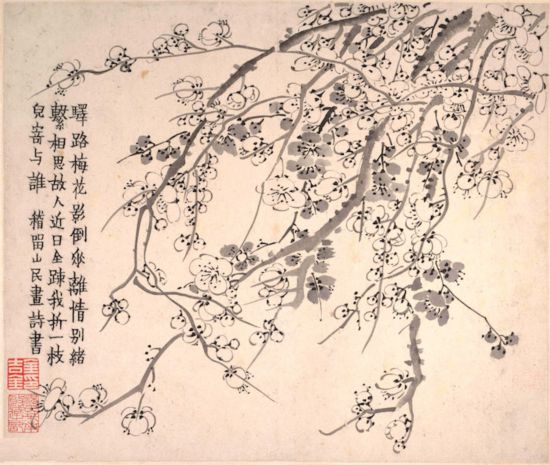 驛路梅花影倒垂離情別緒
繫相思故人近日全踈我折一枝
兒寄与誰 稽留山民畫詩書